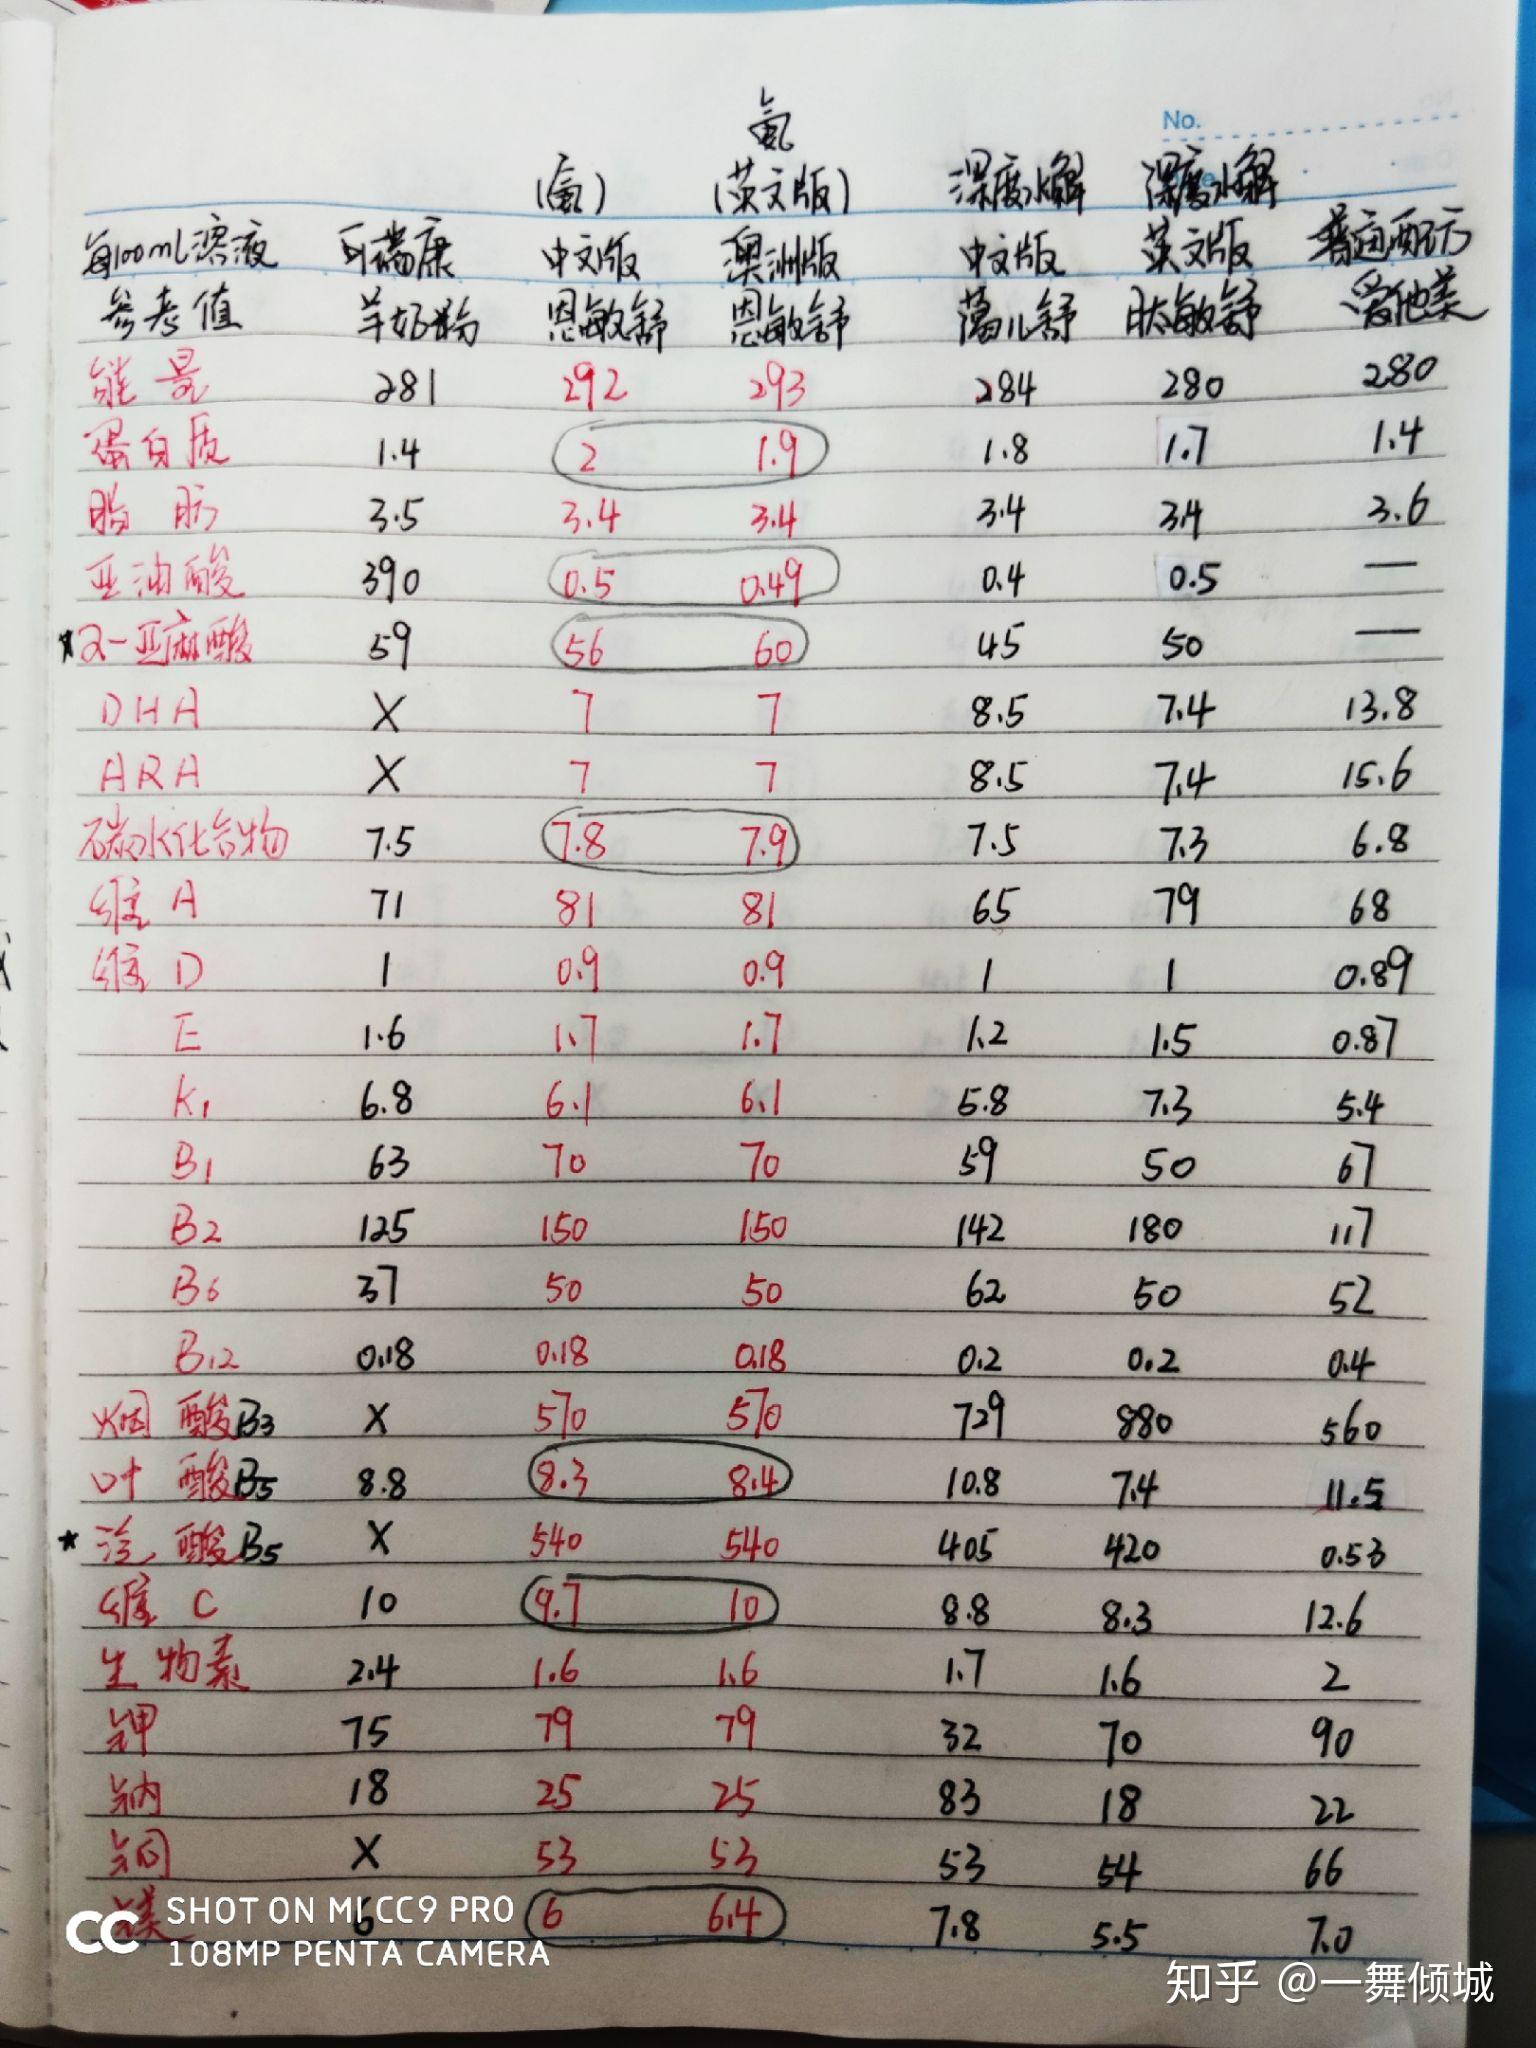 No.
氨
(氨) (英文版) 深度水解 深度水解
每100mL溶液 可瑞康 中文版 澳洲版 中文版 英文版 普通配方
参考值 羊奶粉 恩敏舒 恩敏舒 蔼儿舒 肽敏舒 爱他美
能量 281 292 293 284 280 280
蛋白质 1.4 2 1.9 1.8 1.7 1.4
脂肪 3.5 3.4 3.4 3.4 3.4 3.6
亚油酸 390 0.5 0.49 0.4 0.5 —
★α-亚麻酸 59 56 60 45 50 —
DHA X 7 7 8.5 7.4 13.8
ARA X 7 7 8.5 7.4 15.6
碳水化合物 7.5 7.8 7.9 7.5 7.3 6.8
维A 71 81 81 65 79 68
维D 1 0.9 0.9 1 1 0.89
E 1.6 1.7 1.7 1.2 1.5 0.87
K1 6.8 6.1 6.1 5.8 7.3 5.4
B1 63 70 70 59 50 67
B2 125 150 150 142 180 117
B6 37 50 50 62 50 52
B12 0.18 0.18 0.18 0.2 0.2 0.4
烟酸B3 X 570 570 729 880 560
叶酸B5 8.8 8.3 8.4 10.8 7.4 11.5
★泛酸B5 X 540 540 405 420 0.53
维C 10 9.7 10 8.8 8.3 12.6
生物素 2.4 1.6 1.6 1.7 1.6 2
钾 75 79 79 32 70 90
钠 18 25 25 83 18 22
铜 X 53 53 53 54 66
镁 6 6 6.4 7.8 5.5 7.0
SHOT ON MI CC9 PRO
108MP PENTA CAMERA
知乎 @一舞倾城